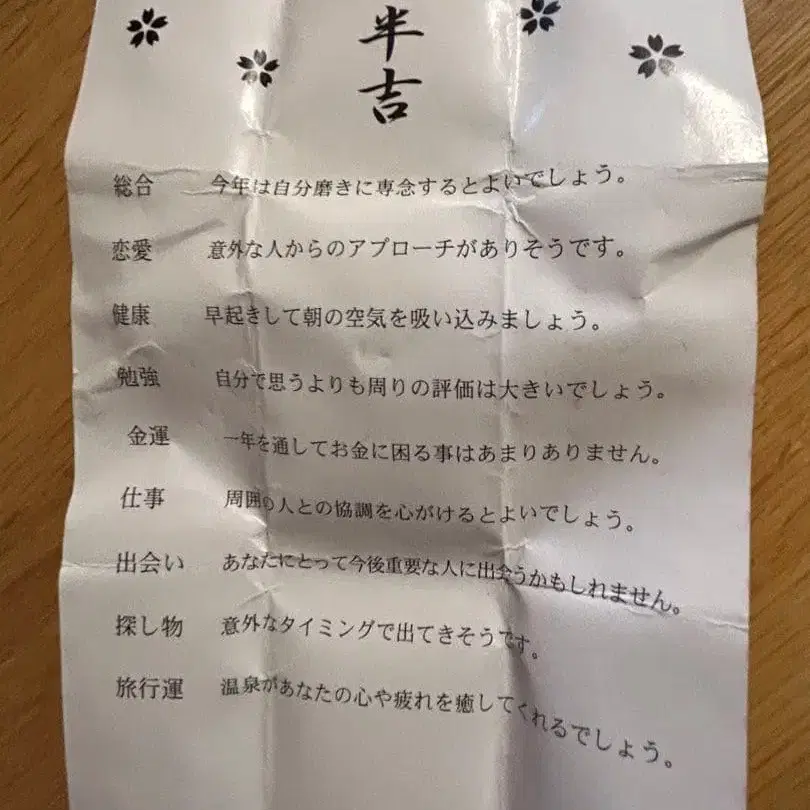 半吉
総合 今年は自分磨きに専念するとよいでしょう。
恋愛 意外な人からのアプローチがありそうです。
健康 早起きして朝の空気を吸い込みましょう。
勉強 自分で思うよりも周りの評価は大きいでしょう。
金運 一年を通してお金に困る事はあまりありません。
仕事 周囲の人との協調を心がけるとよいでしょう。
出会い あなたにとって今後重要な人に出会うかもしれません。
探し物 意外なタイミングで出てきそうです。
旅行運 温泉があなたの心や疲れを癒してくれるでしょう。